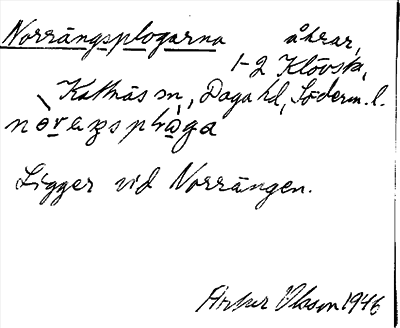 Norrängsplogarna åkrar,
1-2 Klövsta,
Kattnäs sn, Daga hd, Söderm. l.
Ligger vid Norrängen.
Olsson 1946